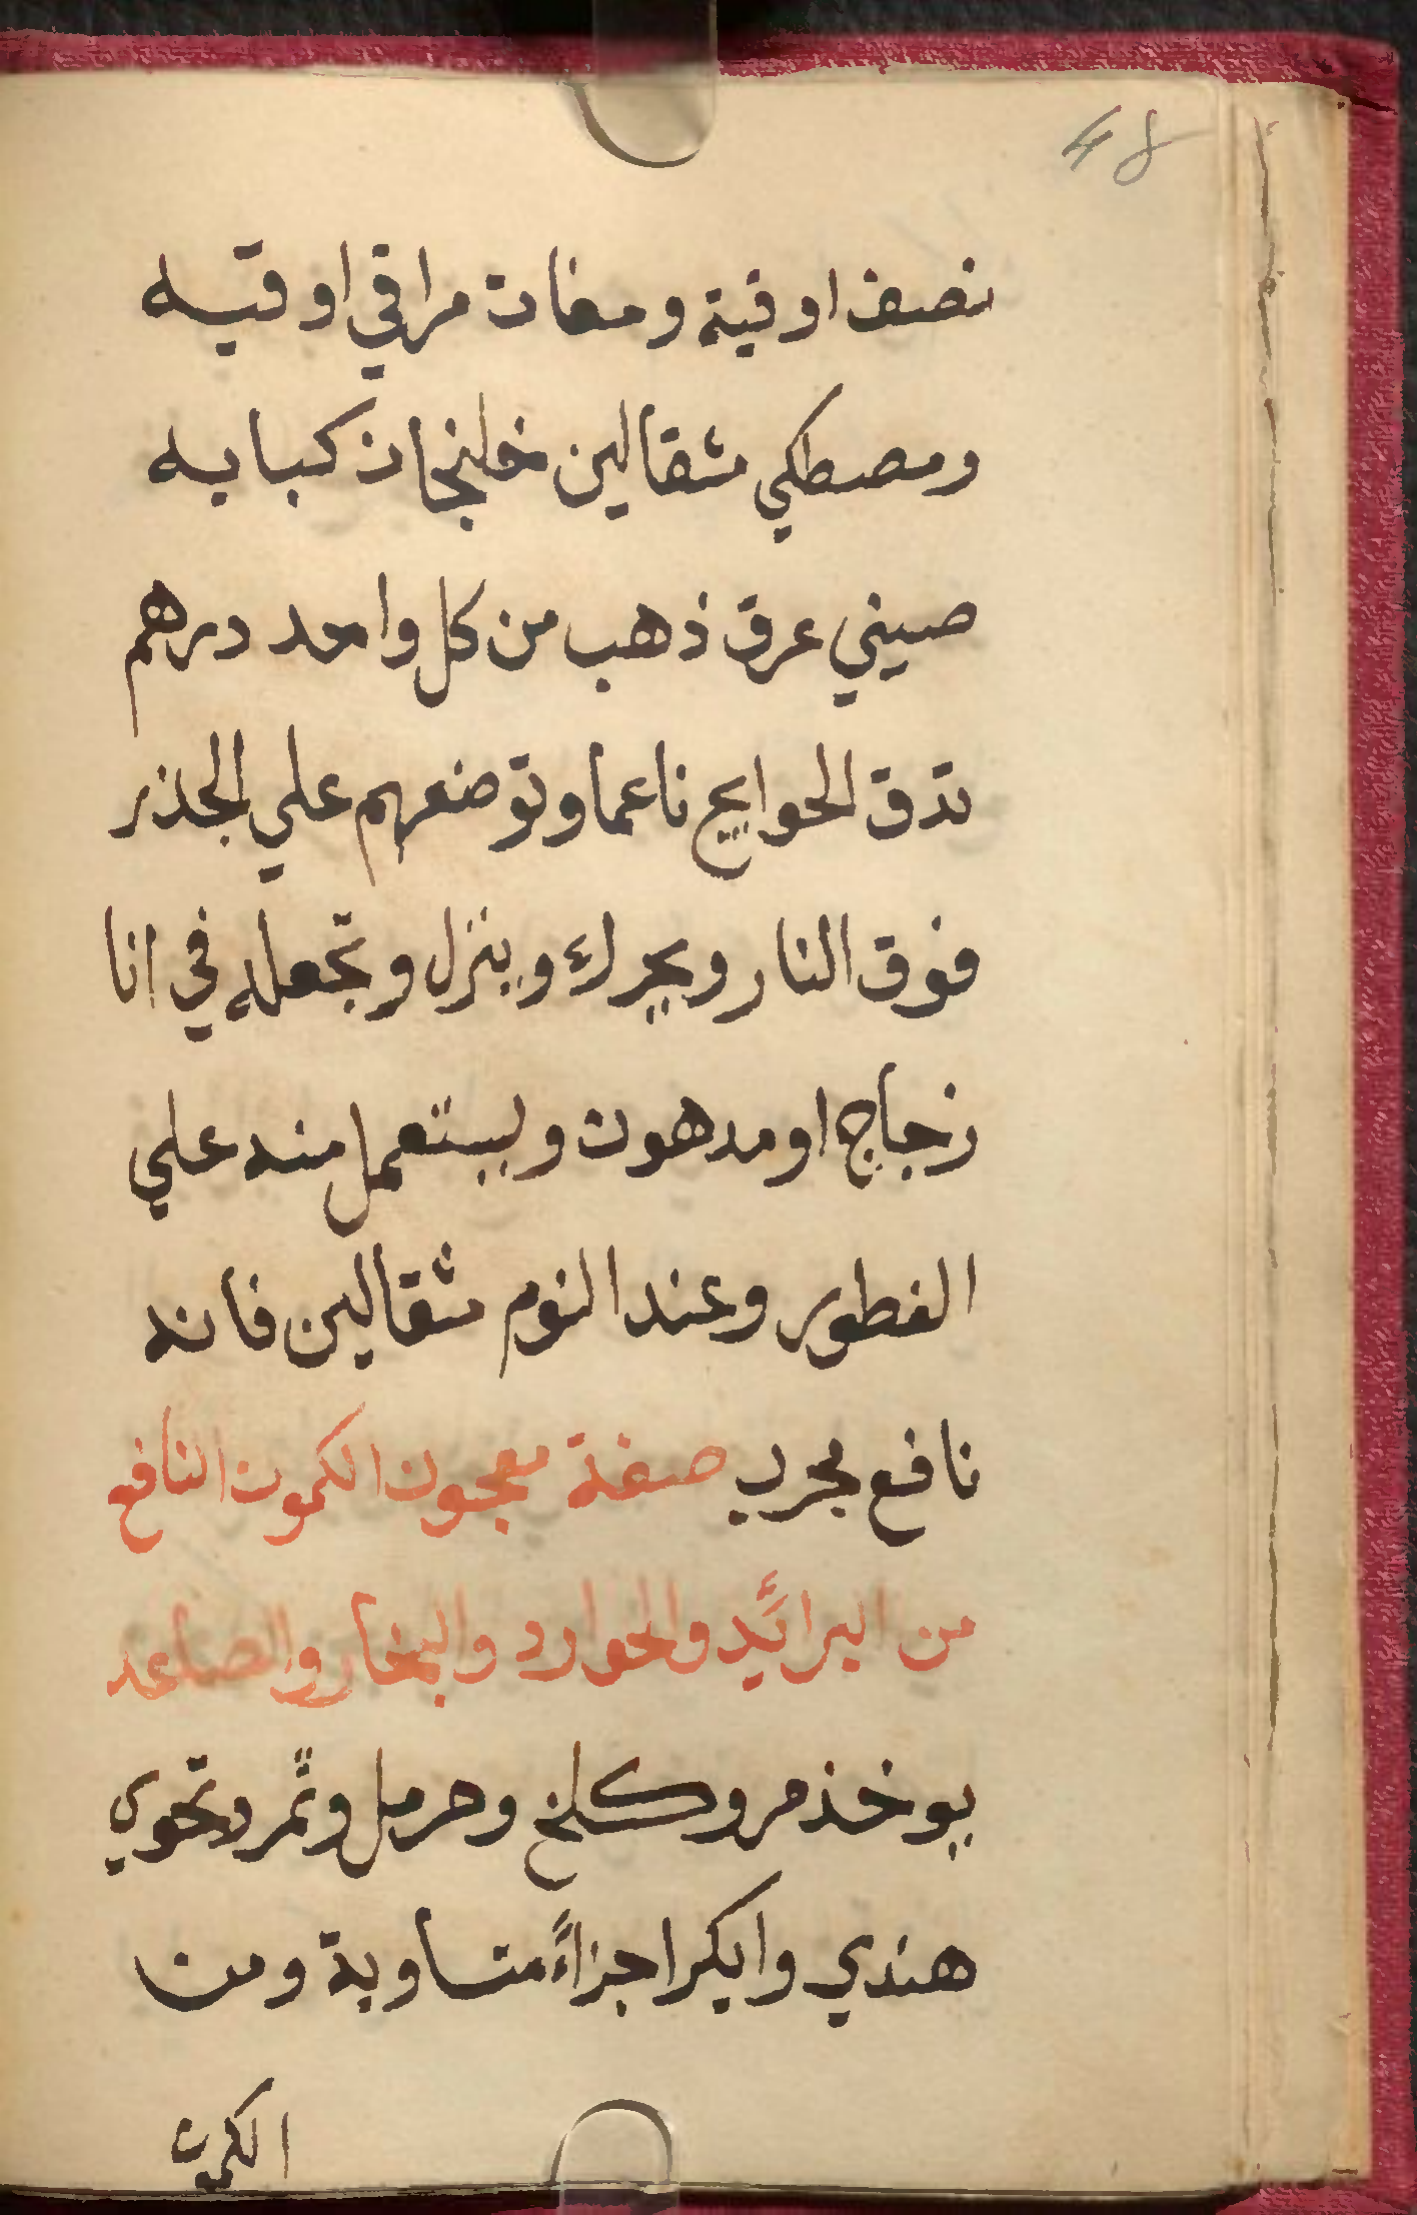 48
نصف اوقية ومغات مراقي اوقيه
ومصطكي مثقالين خلنجان كبابه
صيني عرق ذهب من كل واحد درهم
تدق الحوايج ناعما وتوضعهم علي الجذر
فوق النار ويحرك وينزل وتجعله في انا
زجاج او مدهون ويستعمل منه علي
الفطور وعند النوم مثقالين فانه
نافع مجرب صفة معجون الكمون النافع
من البرائد والحوارد والبخار والصاعد
يوخذ مر وكلخ وحرمل وتمر
هندي وايكر اجزاءً متساوية ومن
الكمون